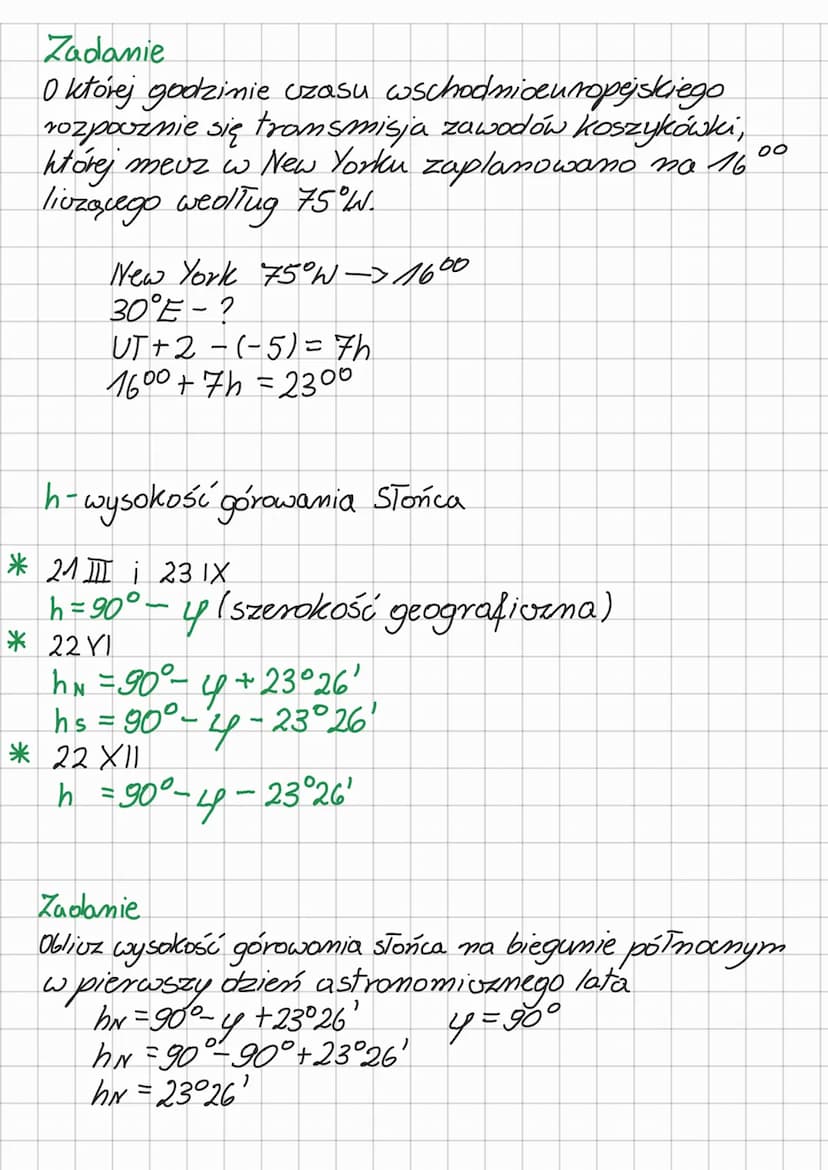 Zadanie
O której godzinie czasu wschodnioeuropejskiego
rozpocznie się transmisja zawodów koszykówki,
której mecz w New Yorku zaplanowano na 16⁰⁰
liczącego według 75°W.
New York 75°W → 16⁰⁰
30°E - ?
UT + 2 - (-5) = 7h
16⁰⁰ + 7h = 23⁰⁰
h - wysokość górowania Słońca
* 21 III i 23 IX
h = 90° - φ (szerokość geograficzna)
* 22 VI
hN = 90° - φ + 23°26'
hS = 90° - φ - 23°26'
* 22 XII
h = 90° - φ - 23°26'
Zadanie
Oblicz wysokość górowania słońca na biegunie północnym
w pierwszy dzień astronomicznego lata
hN = 90° - φ + 23°26' φ = 90°
hN = 90° - 90° + 23°26'
hN = 23°26'